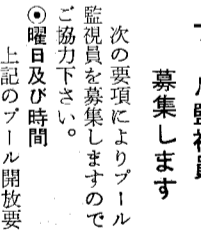 監視員
募集します
次の要項によりプール
監視員を募集しますので
ご協力下さい。
◎曜日及び時間
上記のプール開放要